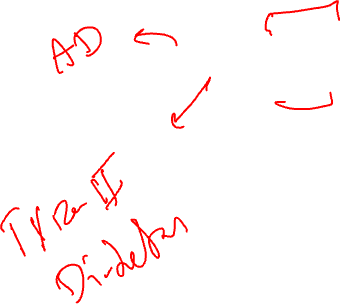 AD
Type II
Diabetes